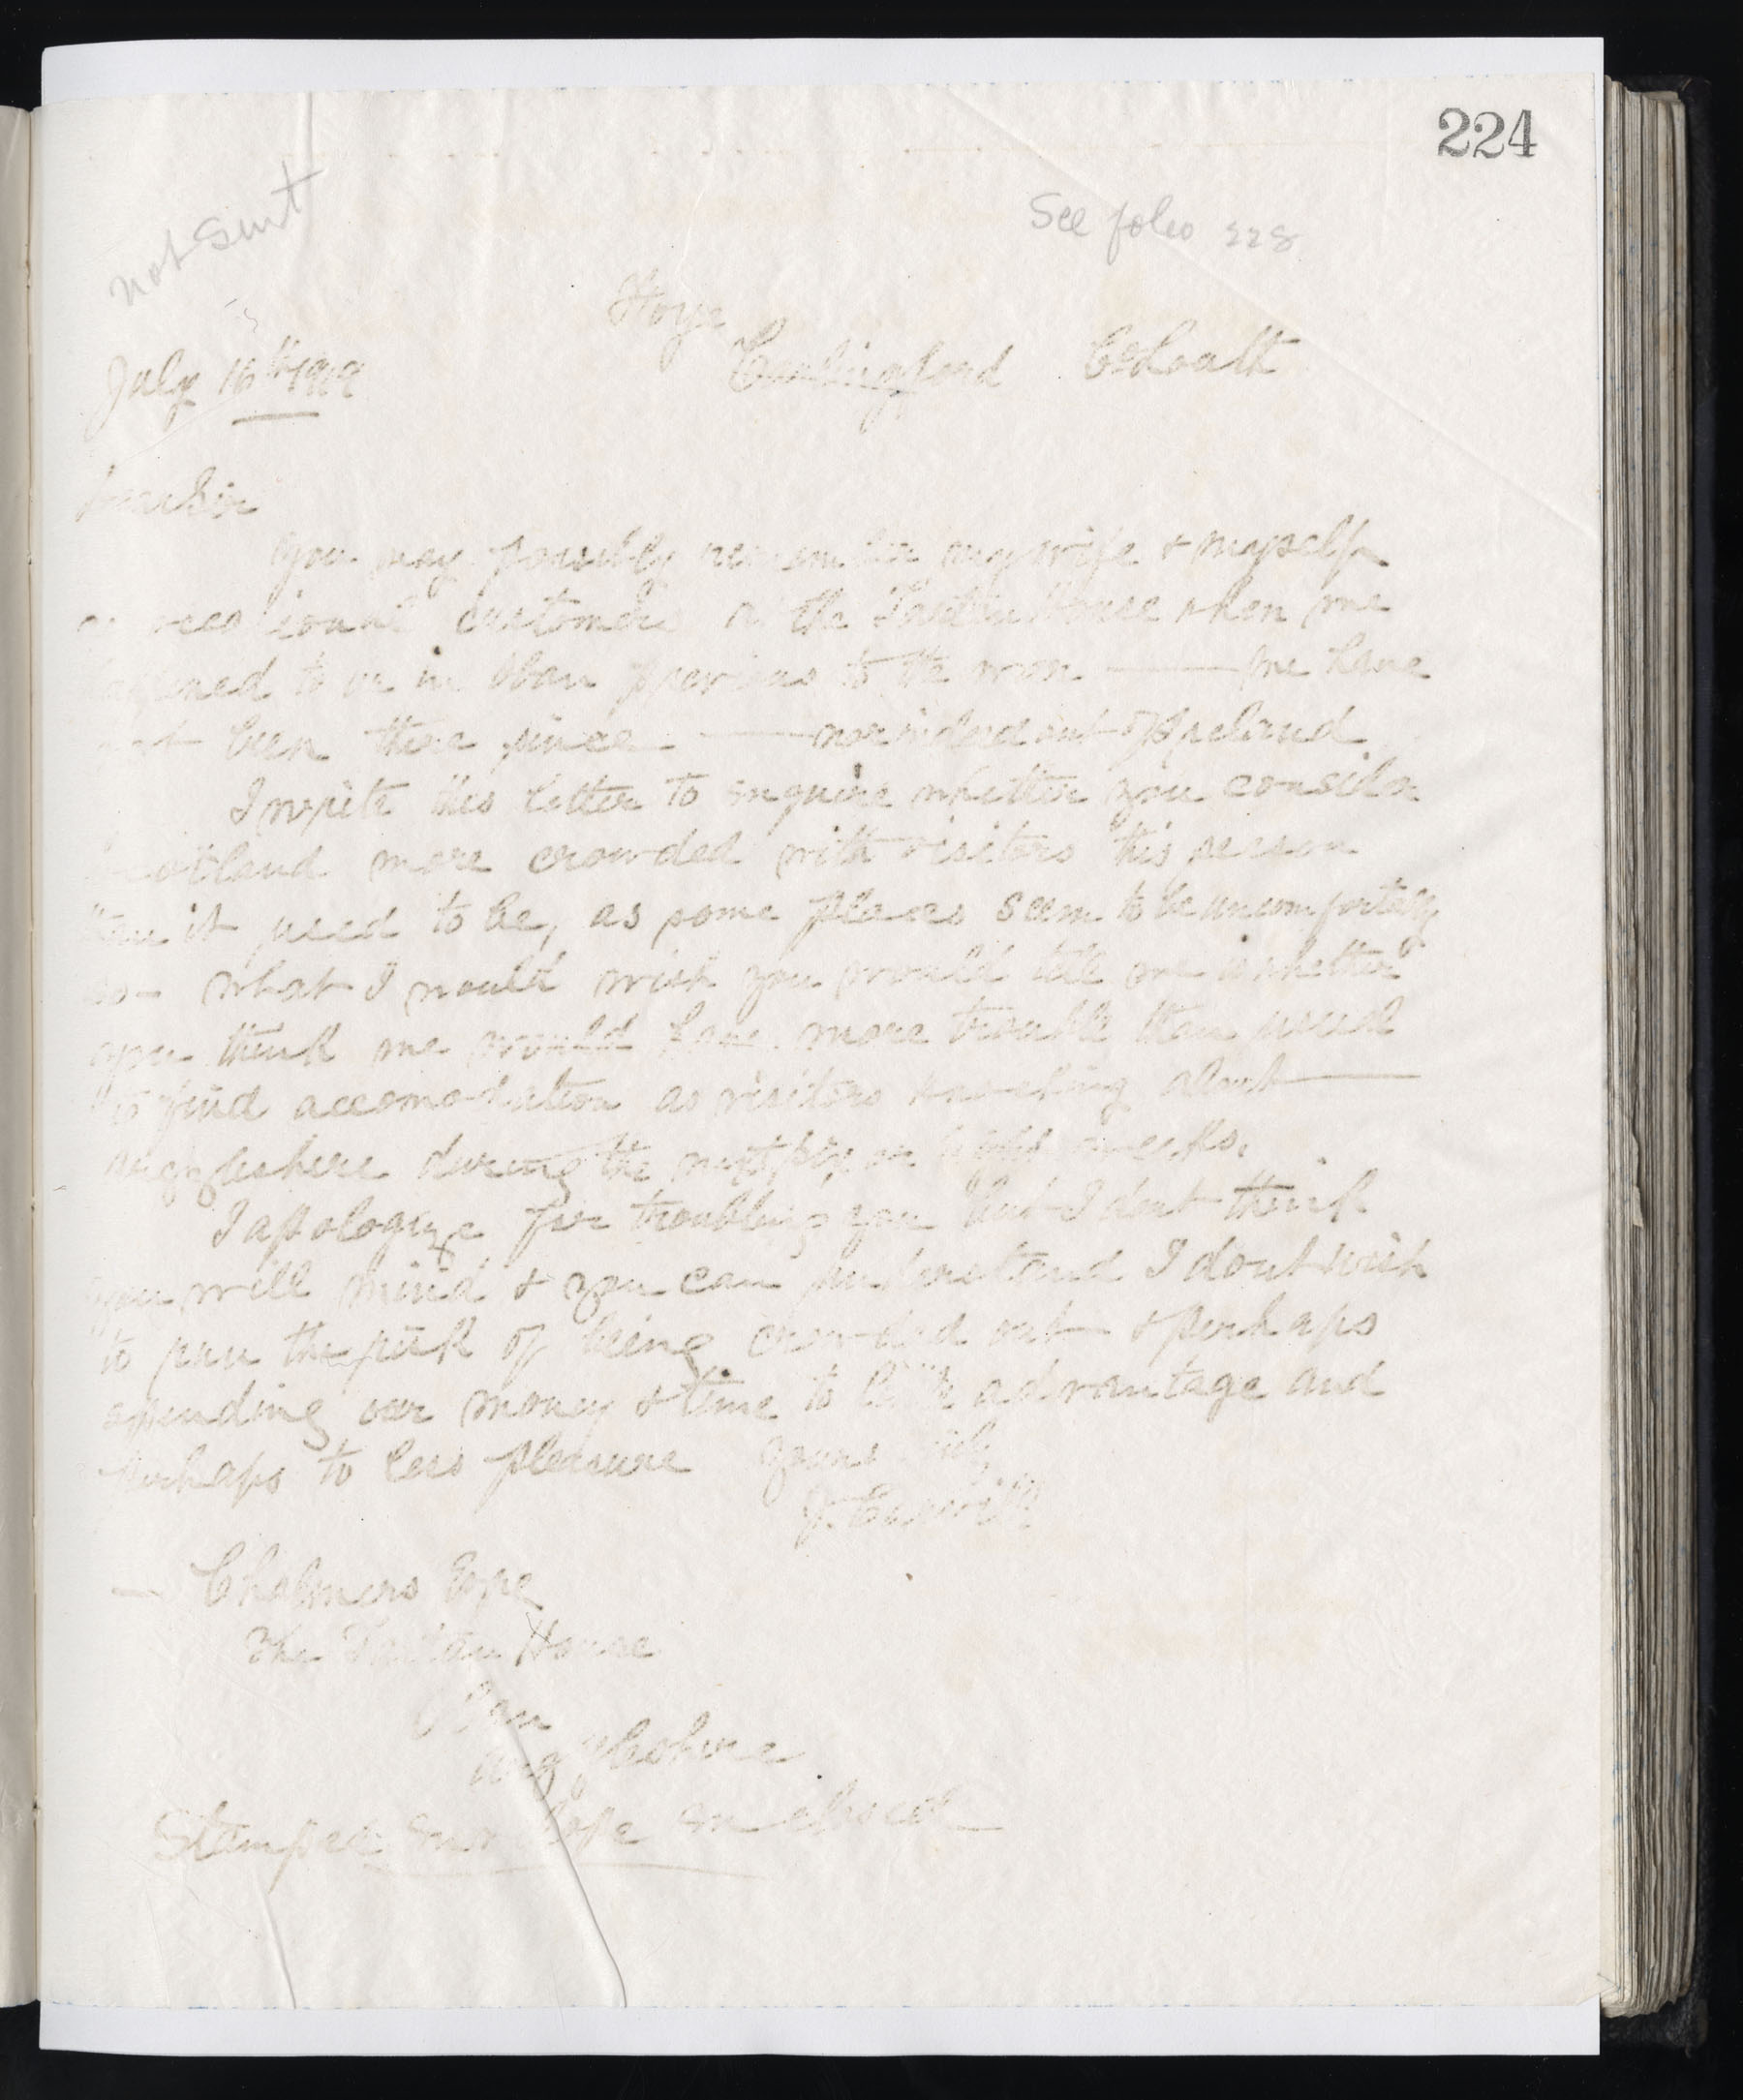 224
not sent
See folio 228
July 16th 1919
Carlingford Co Louth
Dear Sir
You may possibly remember my wife & myself
occasional customers the House when we
to be in Oban previous to the war — we have
not been there since — nor indeed out of Ireland
I write this letter to enquire whether you consider
Scotland more crowded with visitors this season
than it used to be, as some places seem to be uncomfortably
so - what I would wish you would tell me is whether
you think we would have more trouble than usual
to find accomodation as visitors knocking about —
Argyleshire during the next six or eight weeks.
I apologize for troubling you but I dont think
you will mind & you can understand I dont wish
to run the risk of being crowded out & perhaps
spending our money & time to little advantage and
perhaps to less pleasure Yours
— Chalmers Esqre
The Tartan House
Oban
Argyleshire
Stamped envelope enclosed